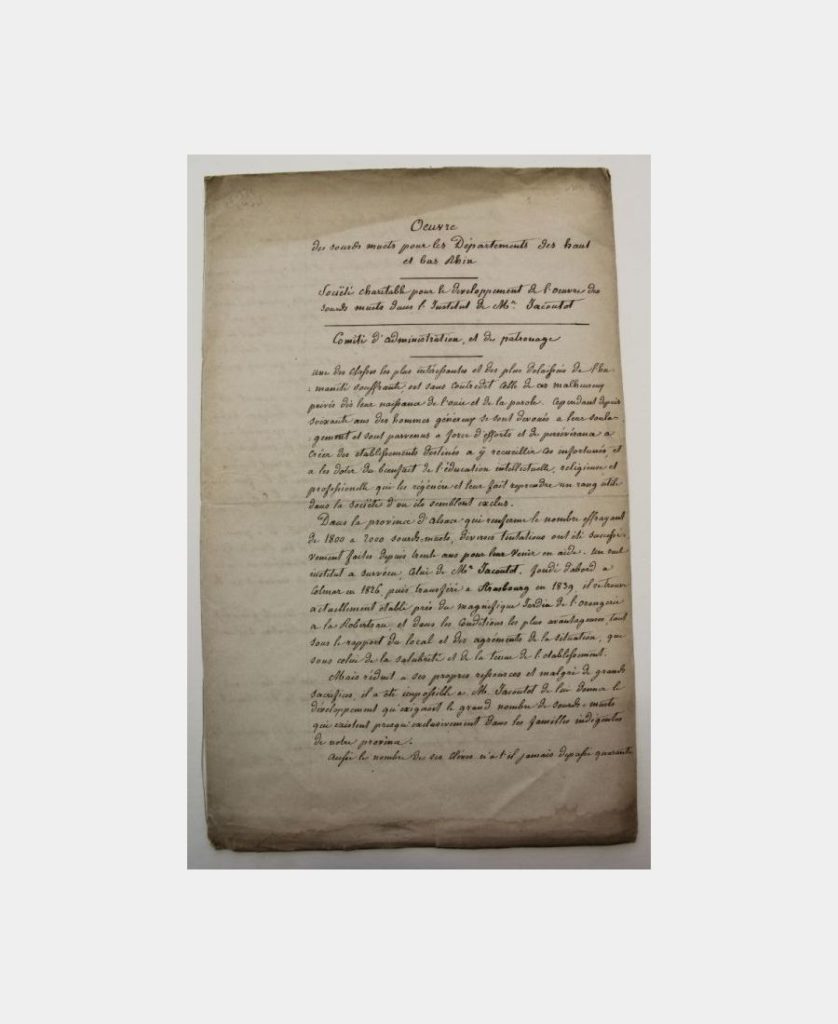 Oeuvre
des sourds muets pour les Départements des haut
et bas Rhin
Société charitable pour le developpement de l'oeuvre des
sourds muets dans l'Institut de Mr. Jacoutot
Comité d'administration, et de patronage
une des classes les plus intéressantes et des plus délaissées de l'hu
:manité souffrante est sans contredit celle de ces malheureux
privés dès leur naissance de l'ouie et de la parole. Cependant depuis
soixante ans des hommes généreux se sont devoués a leur soula-
gement et sont parvenus a force d'efforts et de persévérance a
créer des établissements destinés a y recueillir ces infortunés, et
a les doter du bienfait de l'éducation intellectuelle, religieuse et
professionelle qui les régénère et leur fait reprendre un rang utile
dans la société d'ou ils semblent exclus.
Dans la province d'Alsace qui renferme le nombre effrayant
de 1800 a 2000 sourds-muets, diverses tentations ont été successi-
vement faites depuis trente ans pour leur venir en aide. Un seul
institut a survécu, celui de Mr. Jacoutot. fondé d'abord a
Colmar en 1826, puis transféré a Strasbourg en 1839, il se trouve
actuellement établi près du magnifique Jardin de l'orangerie
a la Robertsau, et dans les conditions les plus avantageuses, tant
sous le rapport du local et des agréments de la situation, que
sous celui de la salubrité et de la tenue de l'établissement.
Mais réduit a ses propres ressources et malgré de grands
sacrifices, il a été impossible a M. Jacoutot de lui donner le
développement qu'exigeait le grand nombre de sourds-muets
qui existent presqu'exclusivement dans les familles indigentes
de notre province.
Aussi le nombre de ses élèves n'a t'il jamais depassé quarante